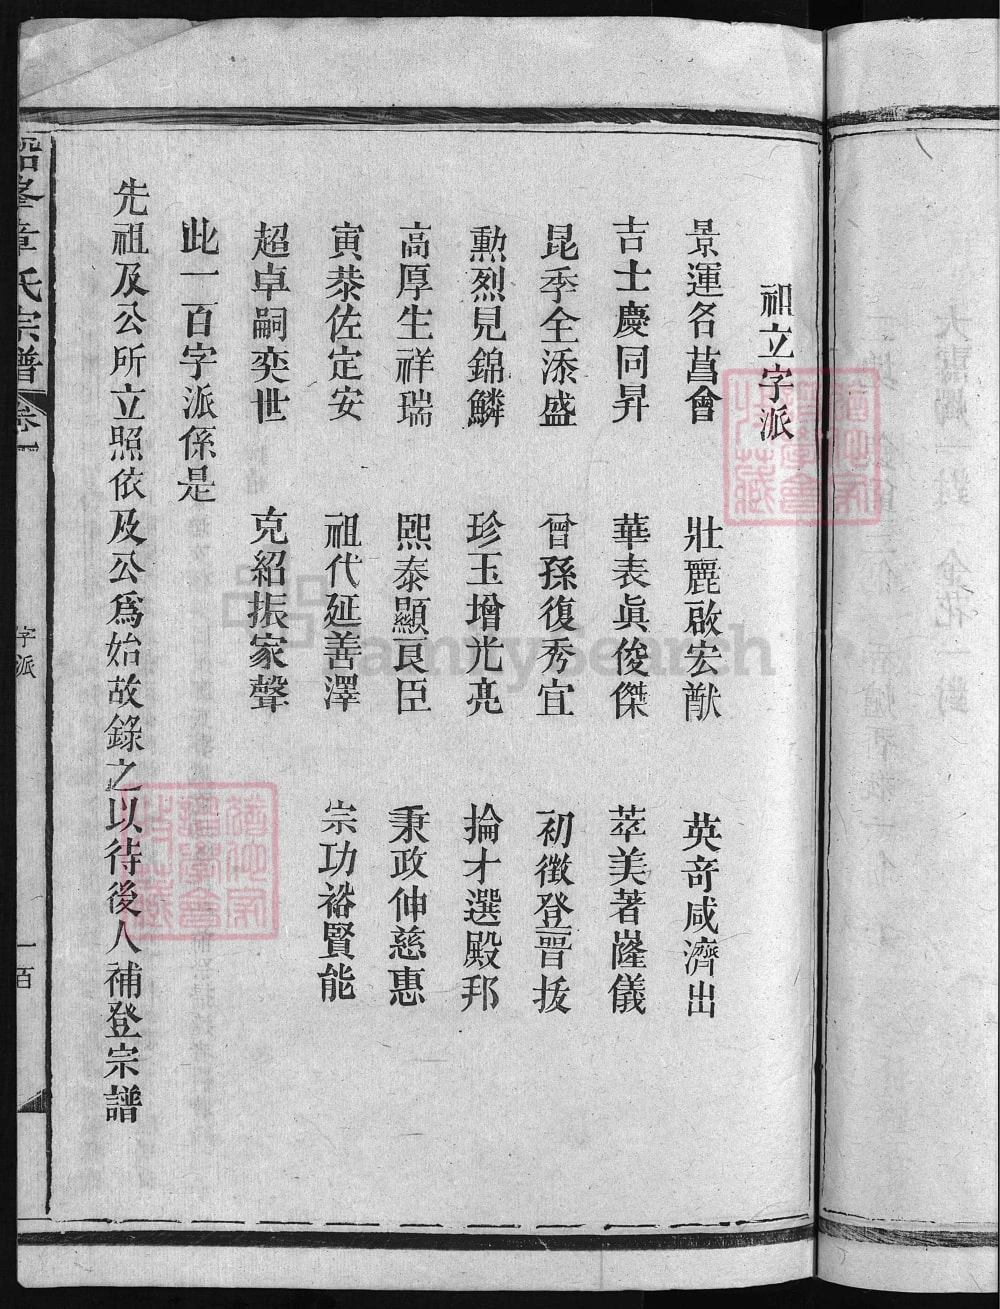 祖立字派
景運名菖會　壯麗啟宏猷　英奇咸濟出
吉士慶同昇　華表眞俊傑　萃美著嶐儀
昆季全添盛　曾孫復秀宜　初徵登晉拔
勳烈見錦鱗　珍玉增光亮　掄才選殿邦
高厚生祥瑞　熙泰顯良臣　秉政伸慈惠
寅恭佐定安　祖代延善澤　宗功裕賢能
超卓嗣奕世　克紹振家聲
此一百字派係是
先祖及公所立照依及公爲始故錄之以待後人補登宗譜
峯章氏宗譜 卷一
字派
一百
FamilySearch